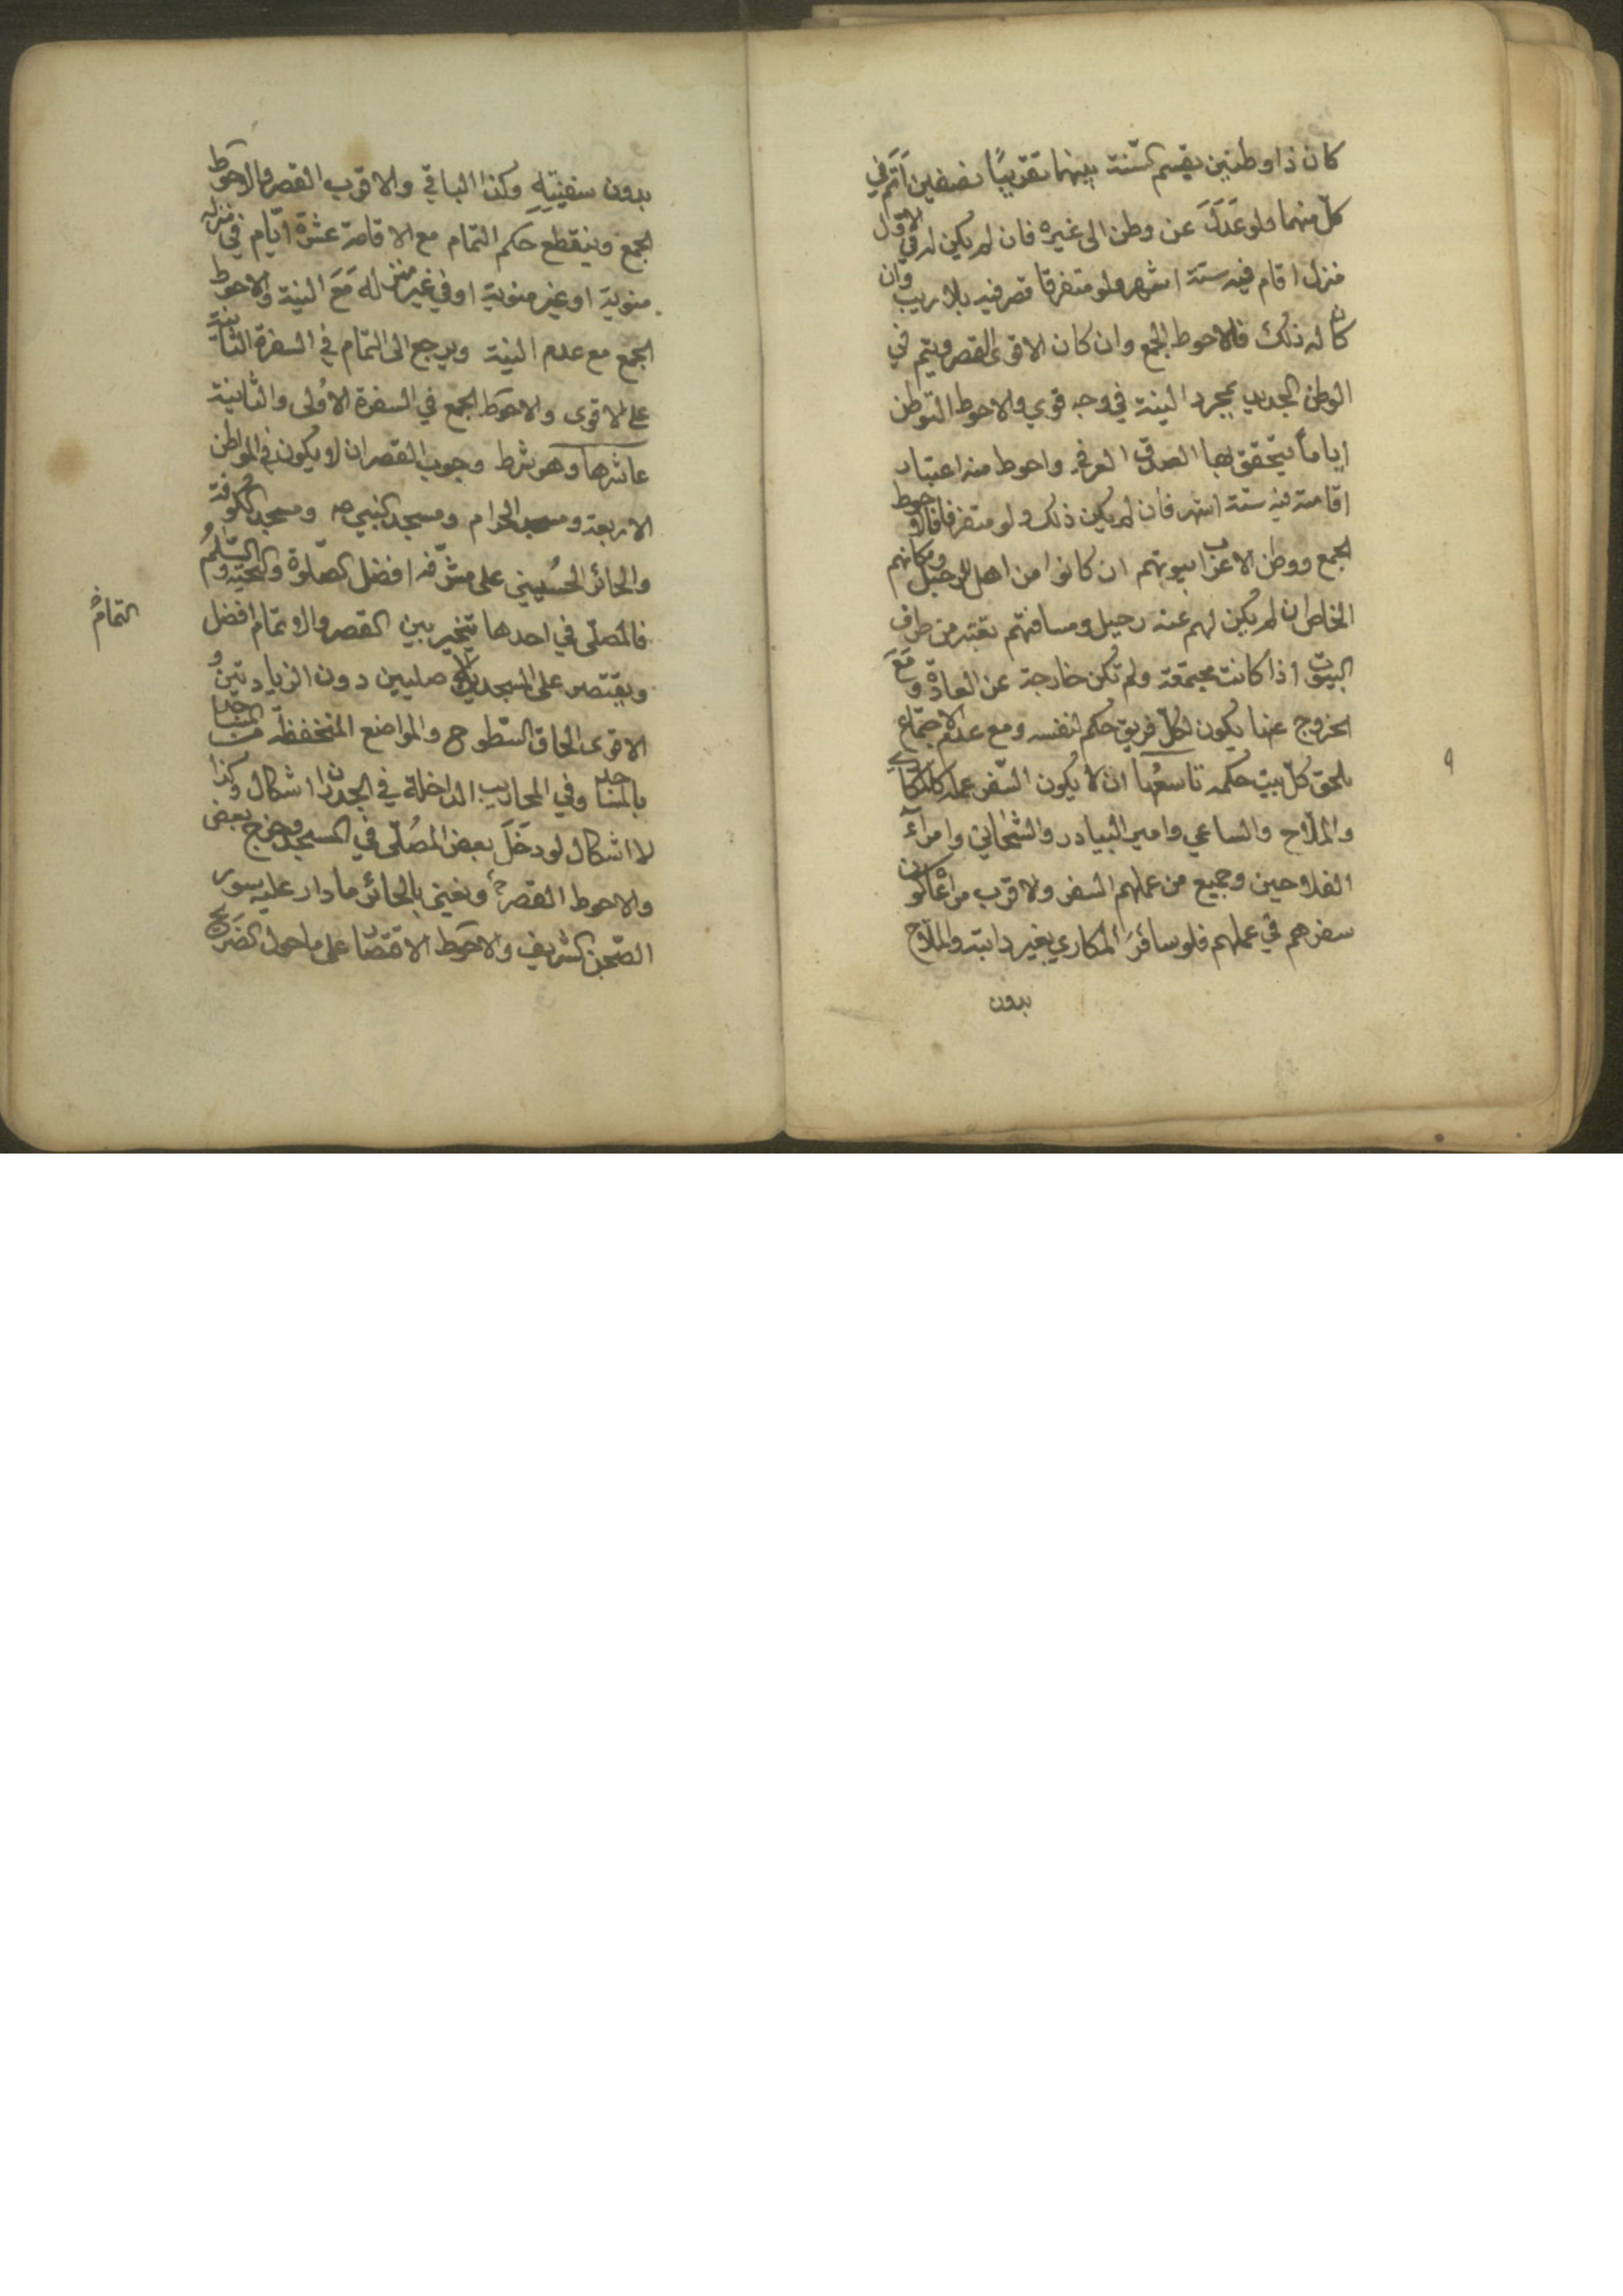 كان ذا وطنين يقسم السّنة بينهما تقريبًا نصفين أتَمّ في
كلّ منهما ولو عَدَلَ عن وطن الى غيره فان لم يكن له في الاوّل
منزل اقام فيه ستة اشهر ولو متفرقا قصر فيه بلا ريب وان
كان له ذلك فالاحوط الجمع وان كان الاقوى القصر ويتم في
الوطن الجديد بمجرد النية في وجه قوي والاحوط التوطن
اياماً يتحقق بها الصدق العرفي واحوط منه اعتبار
اقامته فيه ستة اشهر فان لم يكن ذلك ولو متفرقا فالاحوط
الجمع ووطن الاعراب بيوتهم ان كانوا من اهل الرحيل ومكانهم
الخاص ان لم يكن لهم عنه رحيل ومسافتهم تعتبر من طرف
البيوت اذا كانت مجتمعة ولم تكن خارجة عن العادة ومَعَ
الخروج عنها يكون لكلّ فريق حكم لنفسه ومع عدم الاجتماع
يلحق كلّ بيت حكمه تاسعُها ان لا يكون السّفر عمله كالمكاري
والملّاح والساعي وامير البيادر والشحاني وامرآء
الفلاحين وجميع من عملهم السفر ولا قرب مراعاة كون
سفرهم في عملهم فلو سافَرَ المكاري بغير دابته والملّاح
بدون
٩
بدون سفينتِهِ وكذا الباقي والاقرب القصر والاحوَط
الجمع وينقطع حكم التمام مع الاقامة عشَرة ايّام في منزله
منوية او غير منوية او في غير منزله مَعَ النية والاحوط
الجمع مع عدم النية ويرجع الى التمام في السفرة الثانية
على الاقوى والاحوَط الجمع في السفرة الاُولى والثانية
عاشرها وهو شرط وجوب القصر ان لا يكون في المواطن
الاربعة ومسجد الحرام ومسجد النبي صه ومسجد الكُوفة
والحائر الحُسيني على مشرّفه افضل الصّلوة والتحيّة والسّلمُ
فالمُصلّي في احدها يتخير بين القصر والاتمام افضل
ويقتصر على المسجدين الاصليين دون الزيادتين و
الاقوى الحاق السّطوح والمواضع المنخفضة من المساجد
بالمساجد وفي المحاريب الداخلة في الجدران اشكال وكذا
لا اشكال لو دَخَلَ بعض المُصلّي في المسجد وخرج بعض
والاحوط القصر ح ونعني بالحائر ما دار عليه سور
الصّحن الشريف والاحوَط الاقتصار على ما حول الضَريح
التمام